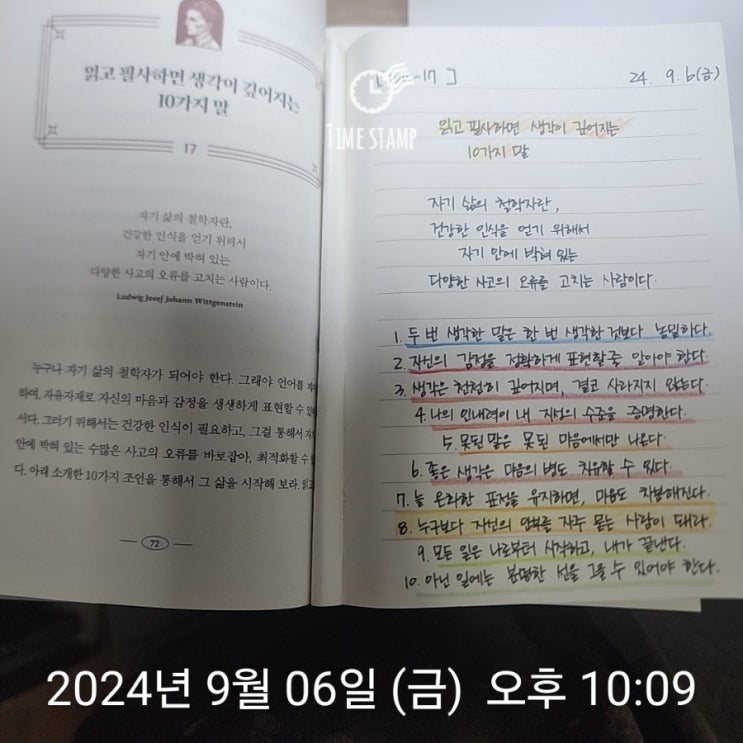 읽고 필사하면 생각이 깊어지는
10가지 말
17
자기 삶의 철학자란,
건강한 인식을 얻기 위해서
자기 안에 박혀 있는
다양한 사고의 오류를 고치는 사람이다.
Ludwig Josef Johann Wittgenstein
누구나 자기 삶의 철학자가 되어야 한다. 그래야 언어를
하여, 자유자재로 자신의 마음과 감정을 생생하게 표현할 수
서다. 그러기 위해서는 건강한 인식이 필요하고, 그걸 통해서
안에 박혀 있는 수많은 사고의 오류를 바로잡아, 최적화할 수
다. 아래 소개한 10가지 조언을 통해서 그 삶을 시작해 보라.
72
-17 ]
24. 9. 6(금)
TIME STAMP
읽고 필사하면 생각이 깊어지는
10가지 말
자기 삶의 철학자란,
건강한 인식을 얻기 위해서
자기 안에 박혀 있는
다양한 사고의 오류를 고치는 사람이다.
1. 두 번 생각한 말은 한 번 생각한 것보다 농밀하다.
2. 자신의 감정을 정확하게 표현할 줄 알아야 한다.
3. 생각은 천천히 깊어지며, 결코 사라지지 않는다.
4. 나의 인내력이 내 지성의 수준을 증명한다.
5. 못된 말은 못된 마음에서만 나온다.
6. 좋은 생각은 마음의 병도 치유할 수 있다.
7. 늘 온화한 표정을 유지하면, 마음도 차분해진다.
8. 누구보다 자신의 안부를 자주 묻는 사람이 돼라.
9. 모든 일은 나로부터 시작하고, 내가 끝낸다.
10. 아닌 일에는 분명한 선을 그을 수 있어야 한다.
2024년 9월 06일 (금) 오후 10:09